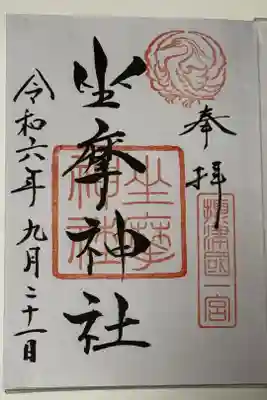 奉拝
摂津國一宮
坐摩神社
坐摩神社
令和六年九月二十一日